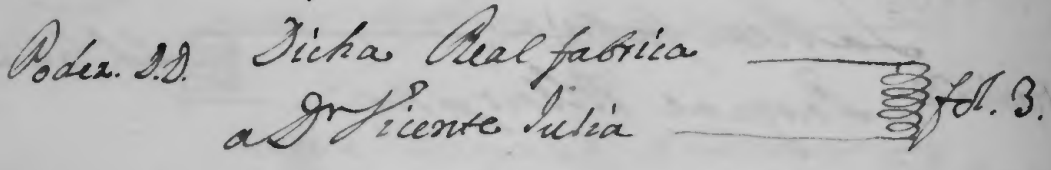 Poder. D.D. Dicha Real fabrica
a Dn Vicente Julia fol. 3.